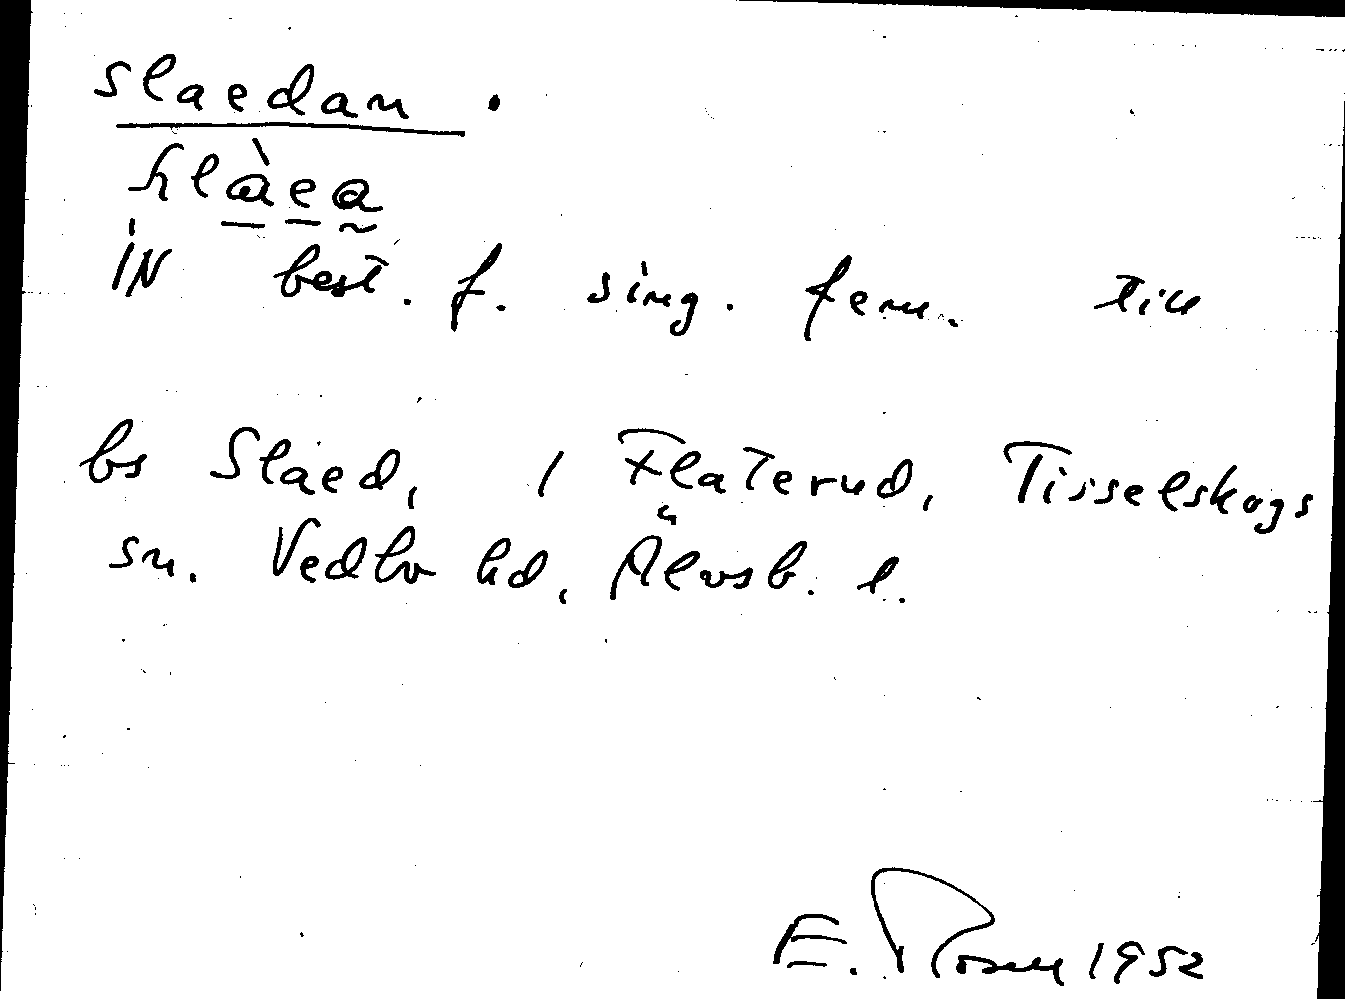 slaedan.
slàea
IN best. f. sing. fem. till
bs Slaed, 1 Flaterud, Tisselskogs
sn. Vedbo hd, Älvsb. l.
E. Rosell 1952